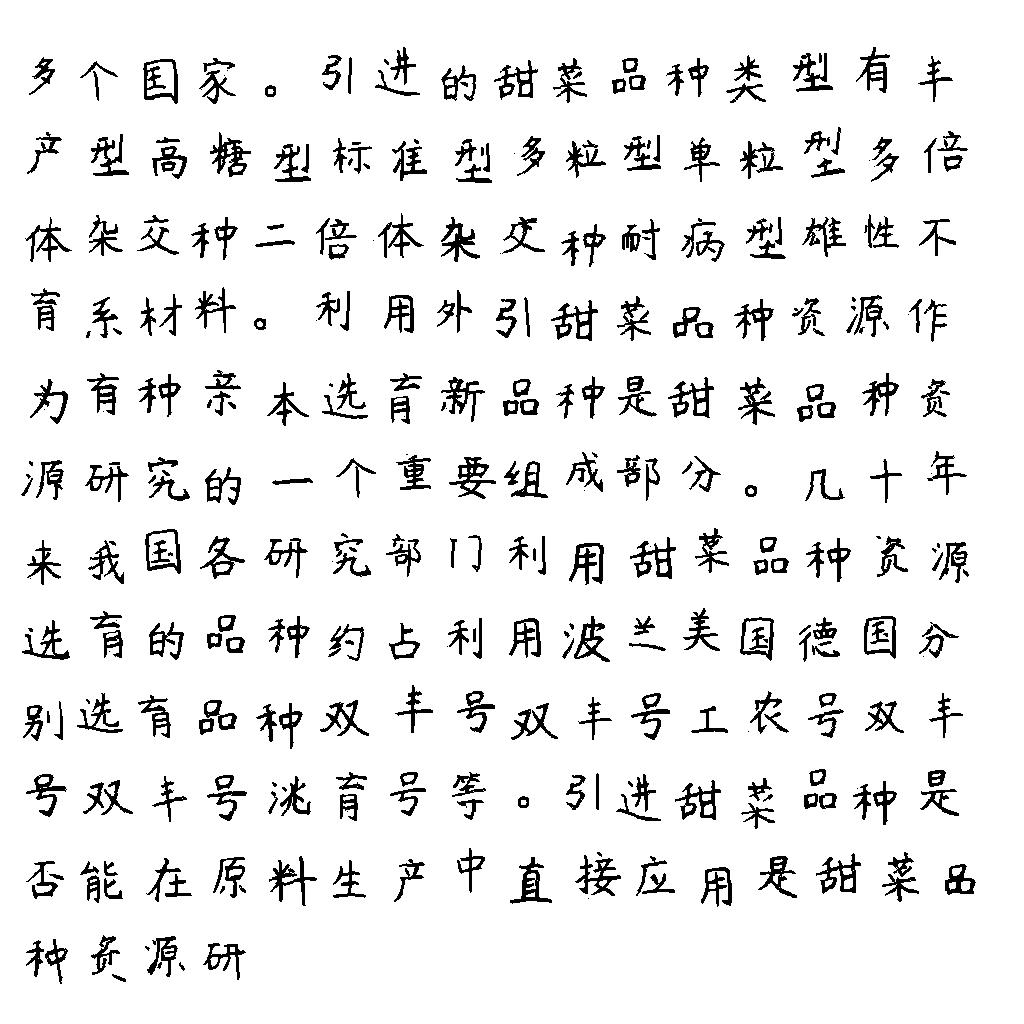 多个国家。引进的甜菜品种类型有丰
产型高糖型标准型多粒型单粒型多倍
体杂交种二倍体杂交种耐病型雄性不
育系材料。利用外引甜菜品种资源作
为育种亲本选育新品种是甜菜品种资
源研究的一个重要组成部分。几十年
来我国各研究部门利用甜菜品种资源
选育的品种约占利用波兰美国德国分
别选育品种双丰号双丰号工农号双丰
号双丰号洮育号等。引进甜菜品种是
否能在原料生产中直接应用是甜菜品
种资源研